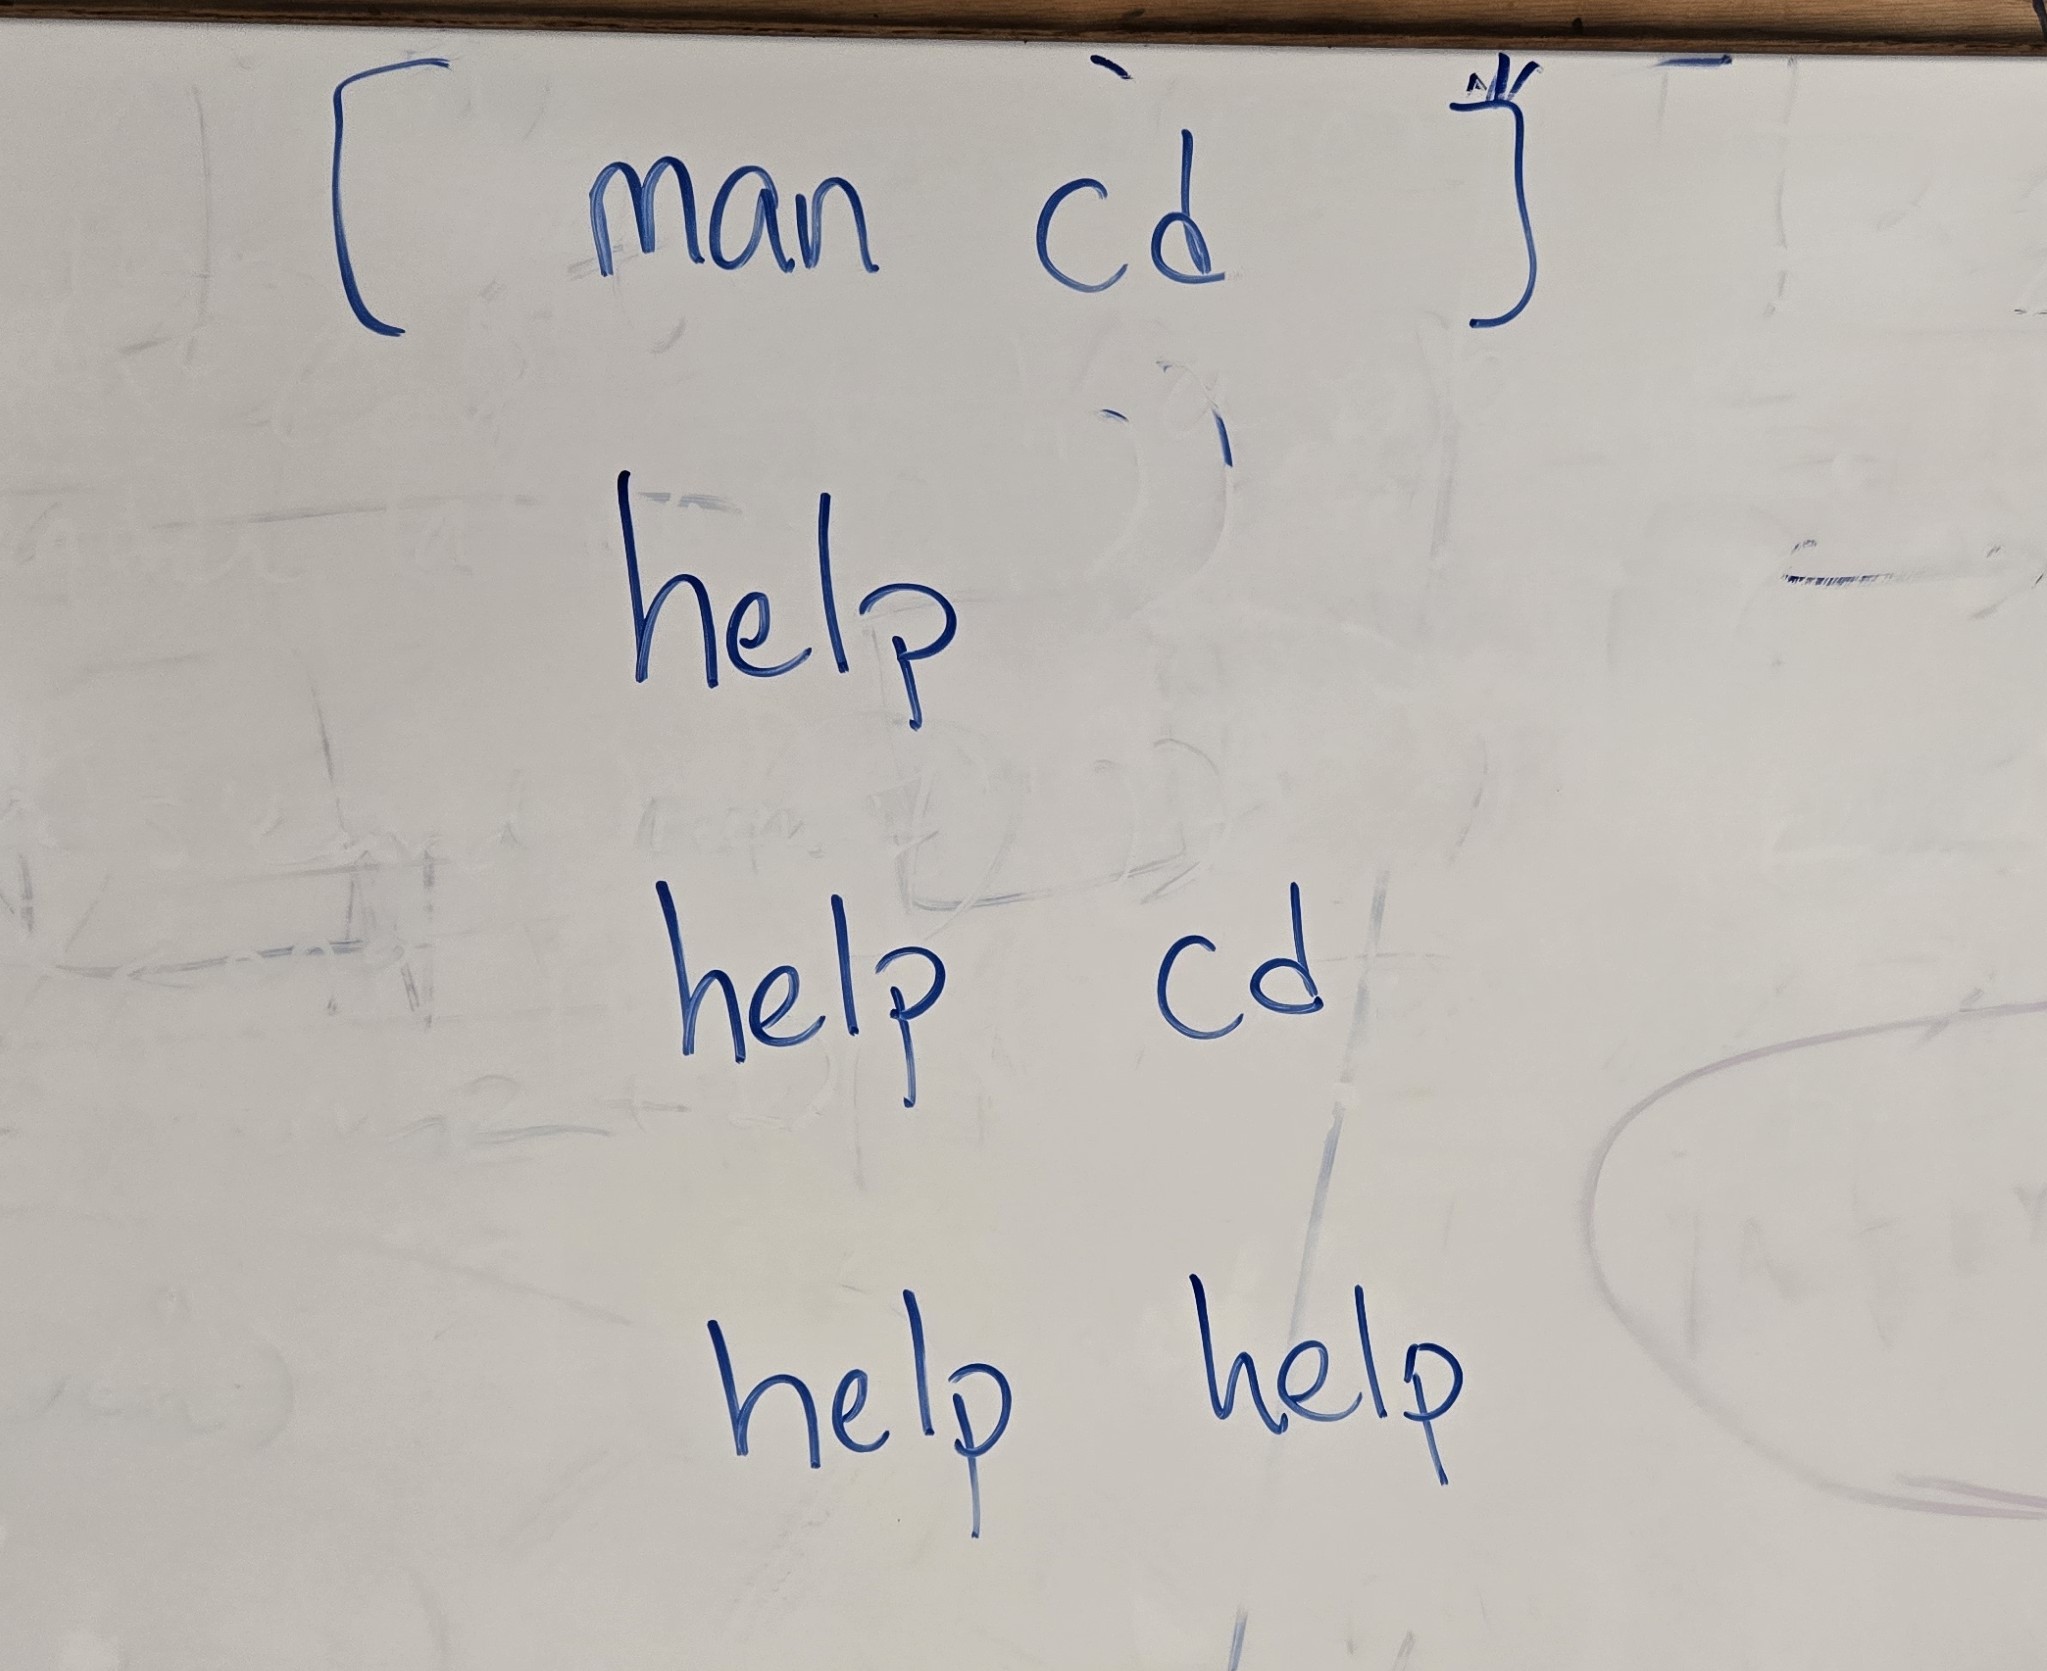 [ man cd ]
help
help cd
help help